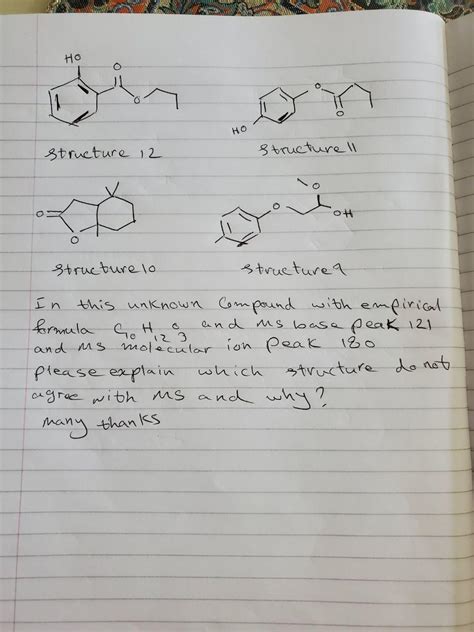 HO
O
O
Structure 12
O
O
HO
Structure 11
O
O
Structure 10
O
O
OH
Structure 9
In this unknown Compound with empirical
formula C10 H12 O3 and MS base peak 121
and MS molecular ion peak 180
please explain which structure do not
agree with MS and why?
many thanks